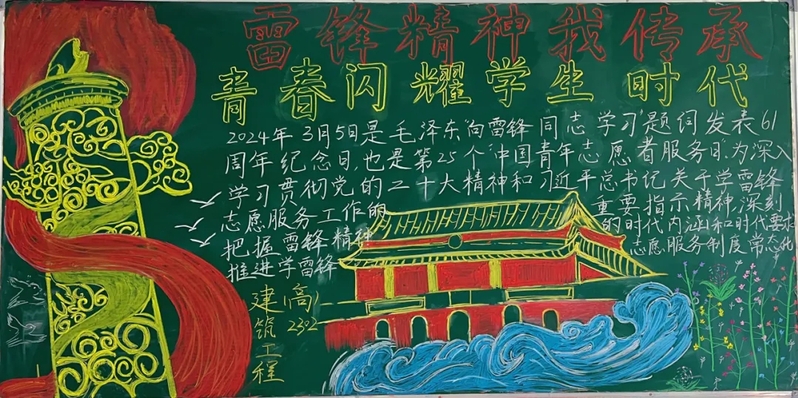 雷锋精神我传承
青春闪耀学生时代
2024年3月5日是毛泽东向雷锋同志学习题词发表61
周年纪念日,也是第25个中国青年志愿者服务日,为深入
学习贯彻党的二十大精神和习近平总书记关于学雷锋
志愿服务工作的 重要指示精神,深刻
把握雷锋精神 的时代内涵和时代要求
推进学雷锋 志愿服务制度常态化
建筑工程
高
2302